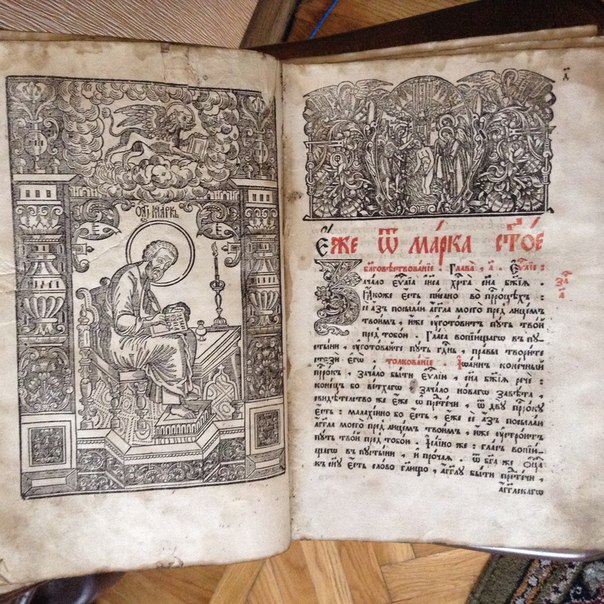 МАРК
Е҆́ЖЕ Ѿ МА́РКА СТ҃ОЕ
благовѣствованїе . Глава , а҃ . Еѵ҃лїе :
Зачало еѵ҃лїа і҆и҃са хрⷭ҇та сн҃а бж҃їѧ .
Ꙗкоже есть писано во прⷪ҇роцѣхъ :
се азъ посылаю аг҃гла моего пред лицемъ
твоимъ , иже уготовитъ путь твой
пред тобою . Гласъ вопїющаго въ пу
стыни , уготовайте путь гдⷭ҇нь , правы творите
стези егѡ . толкованїе . Іѡаннъ конечный
прⷪ҇ркъ , зачало быти еѵ҃лїи , сн҃а бж҃їѧ рече :
конецъ бо ветхагѡ зачало новагѡ завѣта ,
свидѣтелство же еже ѡ прⷣтечи , ѿ двꙋ прⷪ҇рку
есть . малахїино бо есть , еже се азъ посылаю
аг҃гла моего пред лицемъ твоимъ , иже устроитъ
путь твой пред тобою . исаїино же : гласъ вопїю
щагѡ в пустыни , и прочаѧ . ѿ бг҃а же ѻц҃а
къ сн҃у есть слово гл҃ющо , аг҃глу быти прⷣтечи ,
аг҃глскагѡ